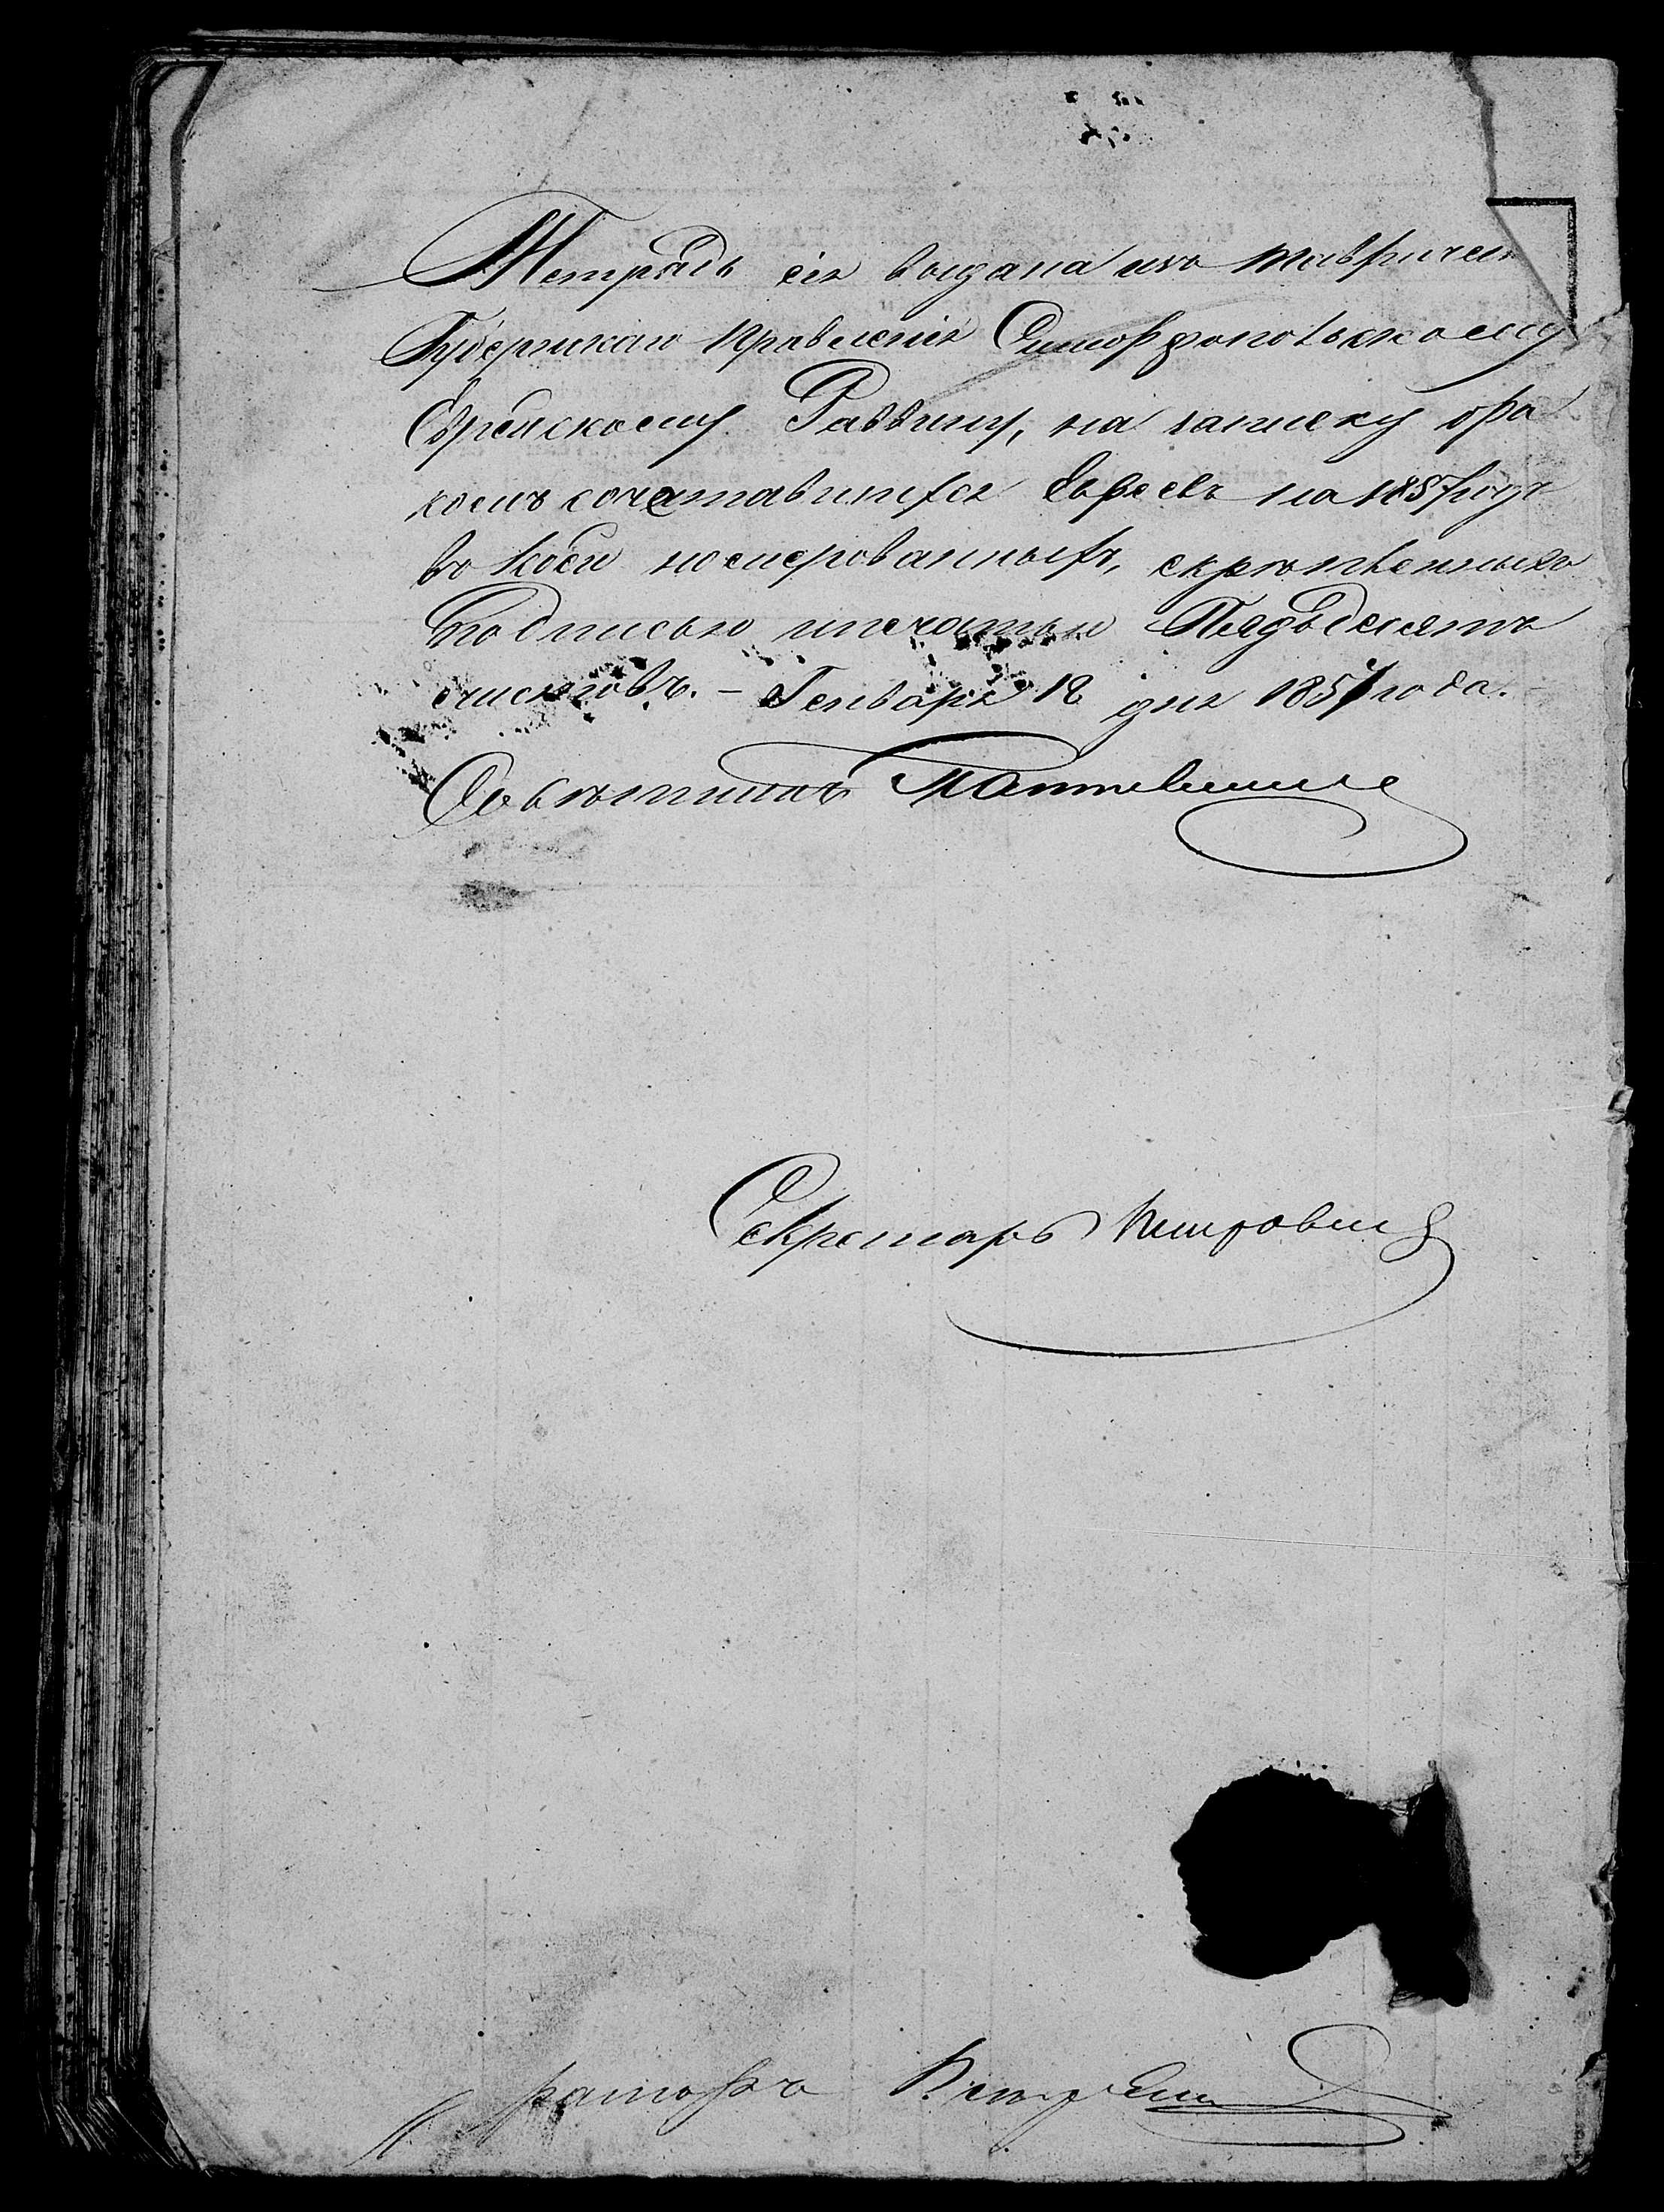 Тетрадь сія выдана изъ Тавричес
Губернскаго Правленія Симферопольскому
Еврейскому Раввину, на записку бра
комъ сочетавшихся Евреевъ на 1857 годъ
въ коей номерованныхъ, скрѣпленныхъ
Подписью и печатью Пядьдесятъ
листовъ. – Генваря 18 дня 1857 года. –
Совѣтникъ
Секретарь Петрович
раторъ